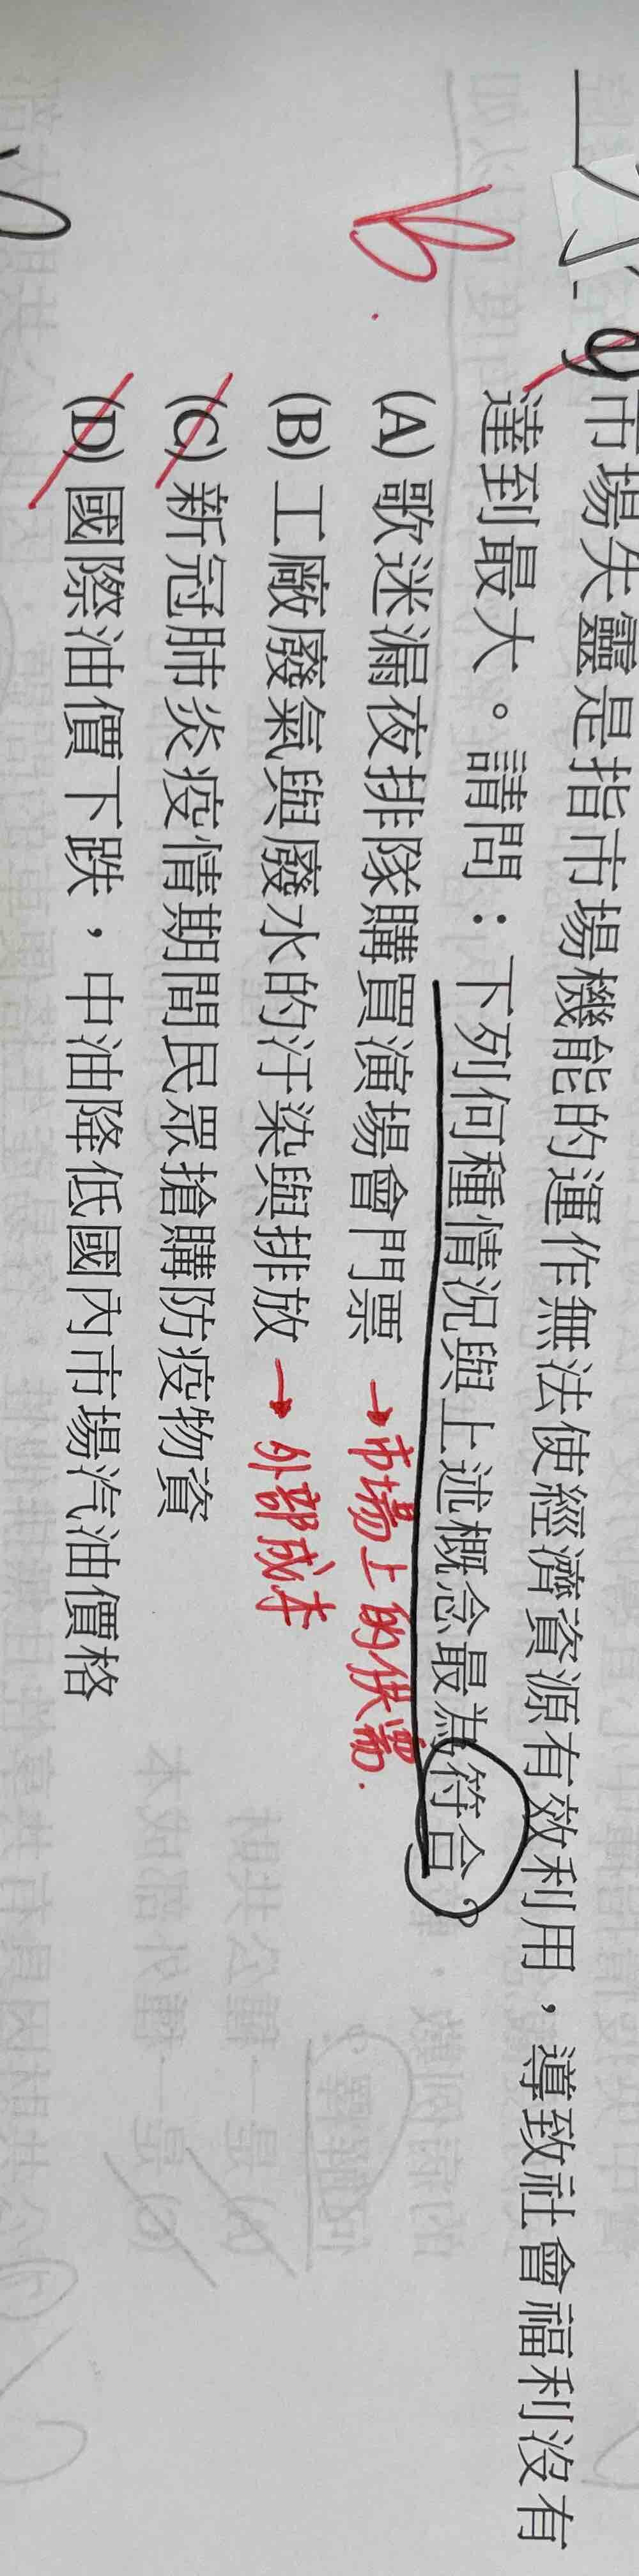 市場失靈是指市場機能的運作無法使經濟資源有效利用，導致社會福利沒有
達到最大。請問：下列何種情況與上述概念最為符合？
(A) 歌迷漏夜排隊購買演場會門票 →市場上的供需.
(B) 工廠廢氣與廢水的汙染與排放 →外部成本
(C) 新冠肺炎疫情期間民眾搶購防疫物資
(D) 國際油價下跌，中油降低國內市場汽油價格